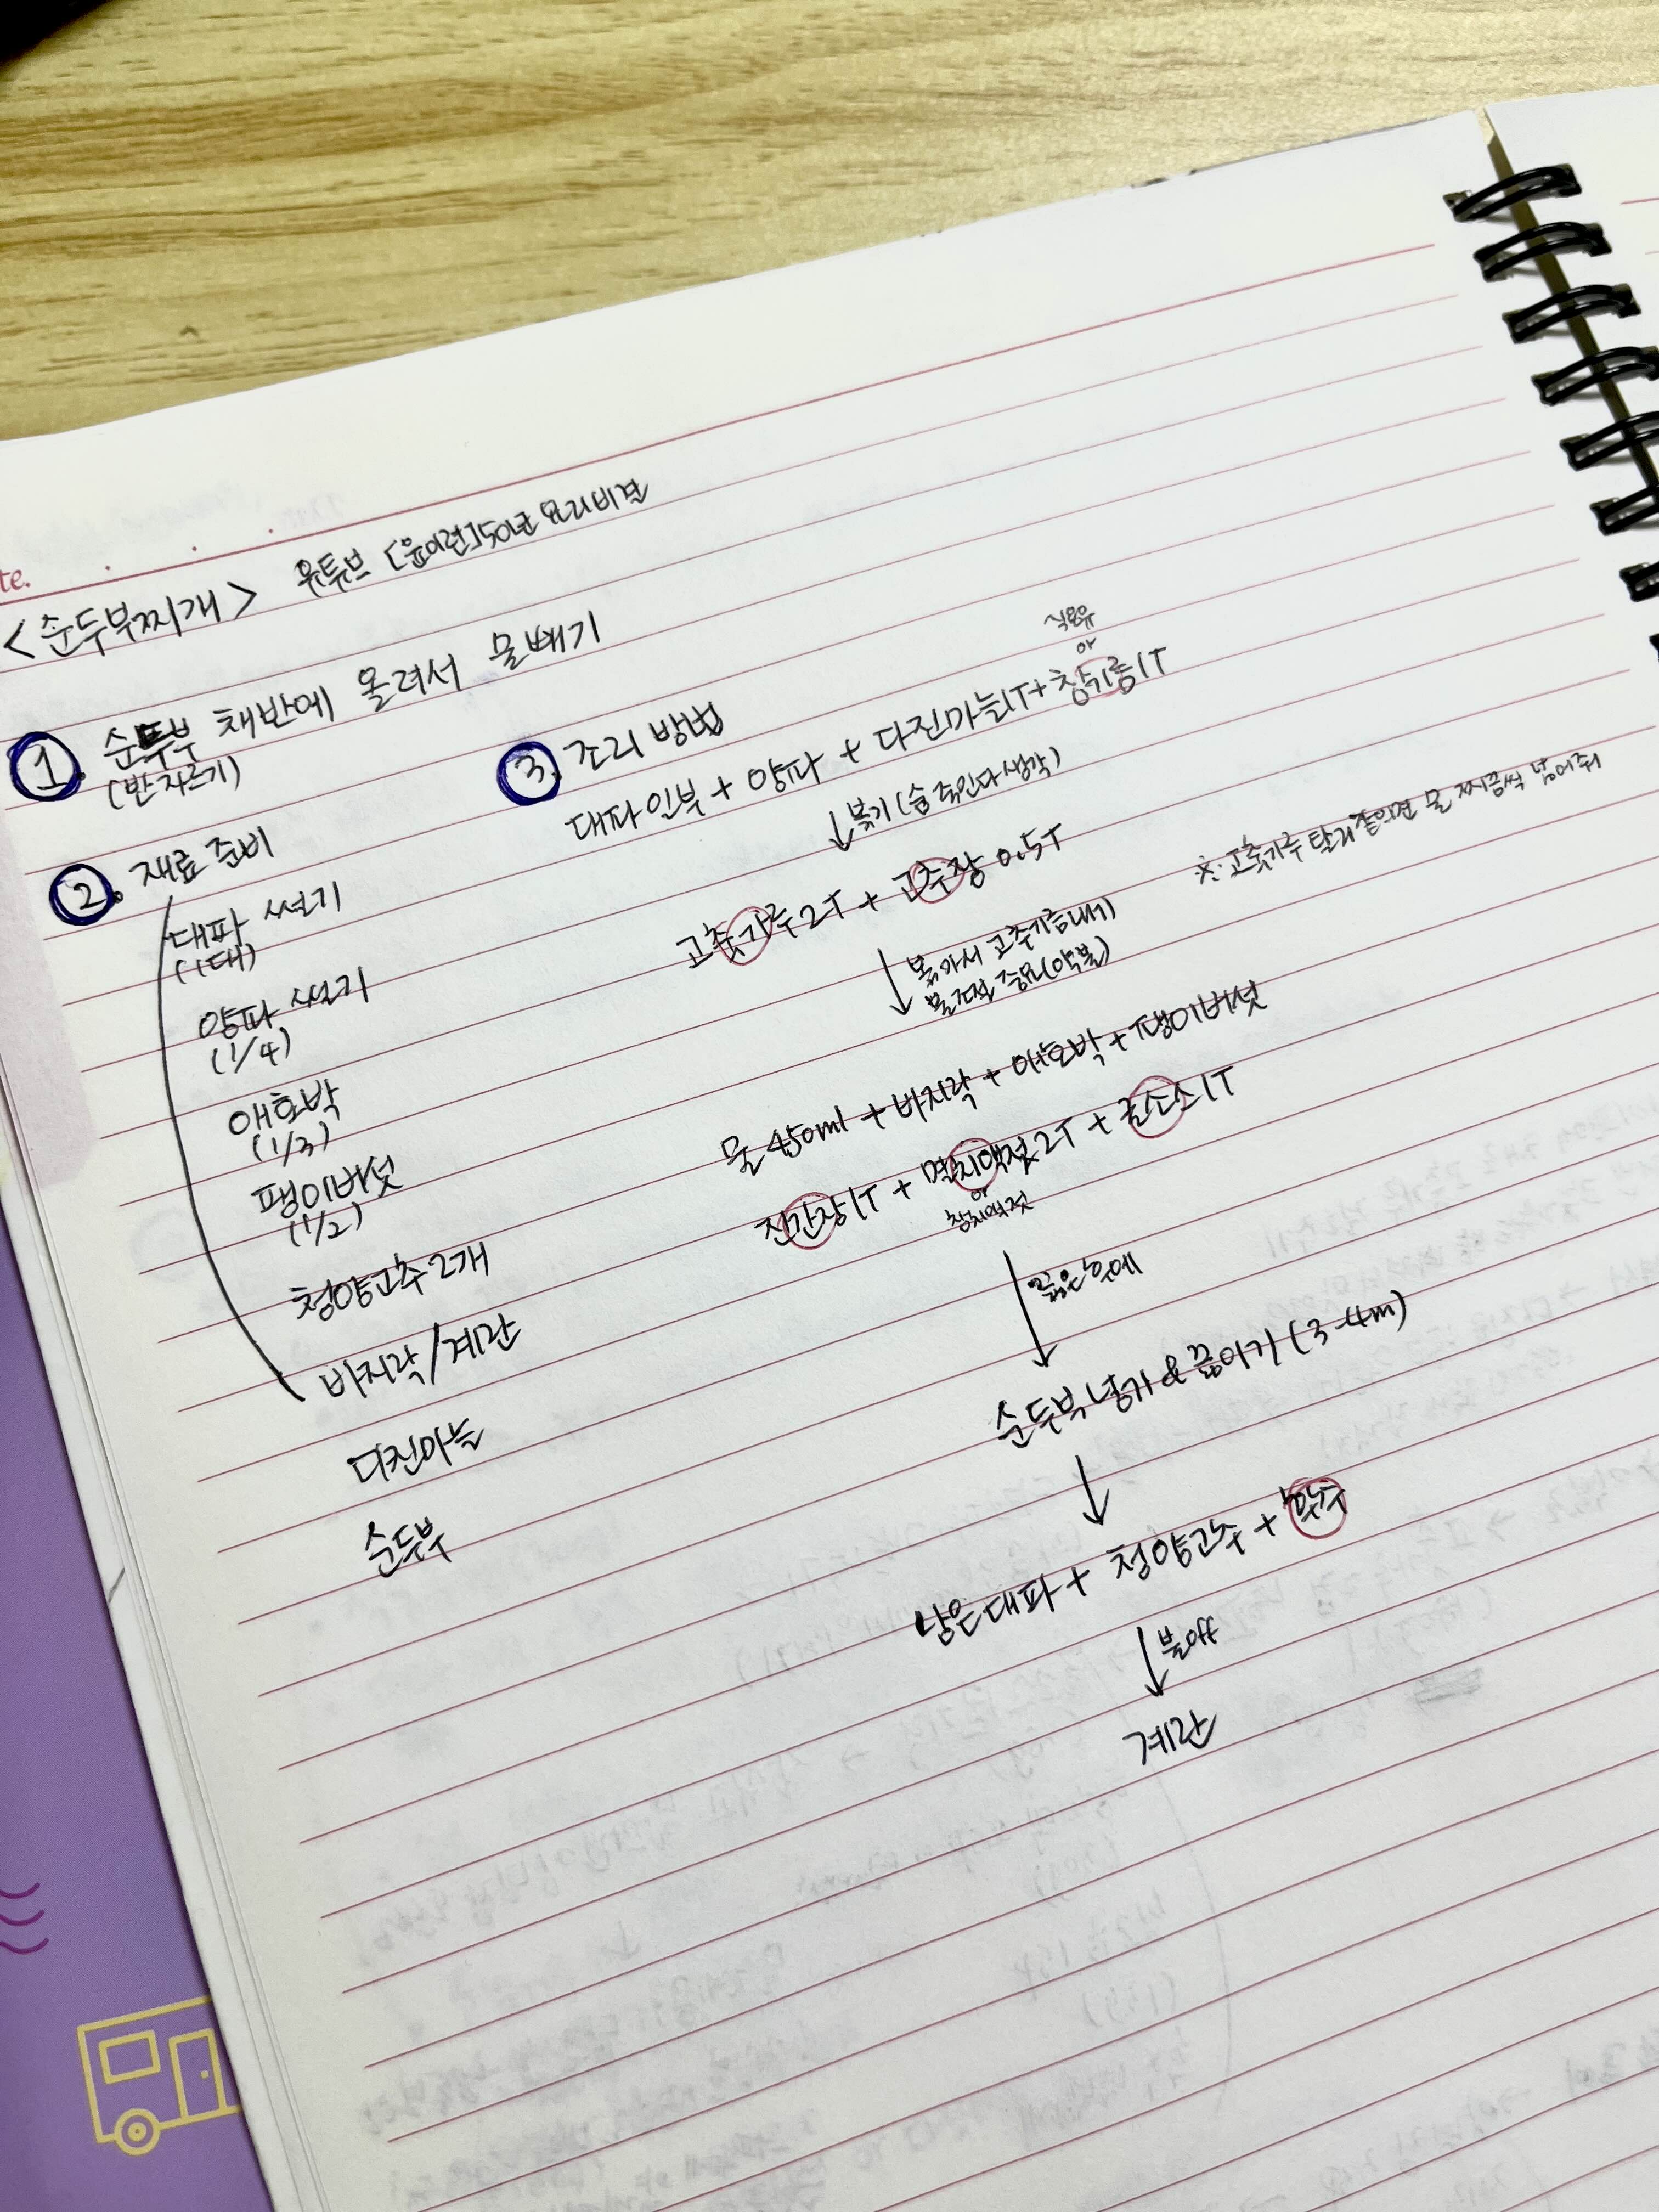 te.
<순두부찌개> 유튜브 [윤이련]50년 요리비결
1. 순두부 채반에 올려서 물빼기
(반 자르기)
2. 재료 준비
대파 썰기
(1대)
양파 썰기
(1/4)
애호박
(1/3)
팽이버섯
(1/2)
청양고추 2개
바지락/계란
다진마늘
순두부
3. 조리 방법
식용유
or
대파 일부 + 양파 + 다진마늘1T + 참기름1T
↓ 볶기 (숨 죽인다 생각)
고춧가루 2T + 고추장 0.5T
※ 고춧가루 탈거 같으면 물 찌끔씩 넣어줘
↓ 볶아서 고추기름내기
불조절 중요(약불)
물 450ml + 바지락 + 애호박 + 팽이버섯
진간장1T + 멸치액젓 2T + 굴소스1T
or
참치액젓
↓ 끓은 후에
순두부 넣기 & 끓이기 (3-4m)
↓
남은대파 + 청양고추 + 후추
↓ 불off
계란